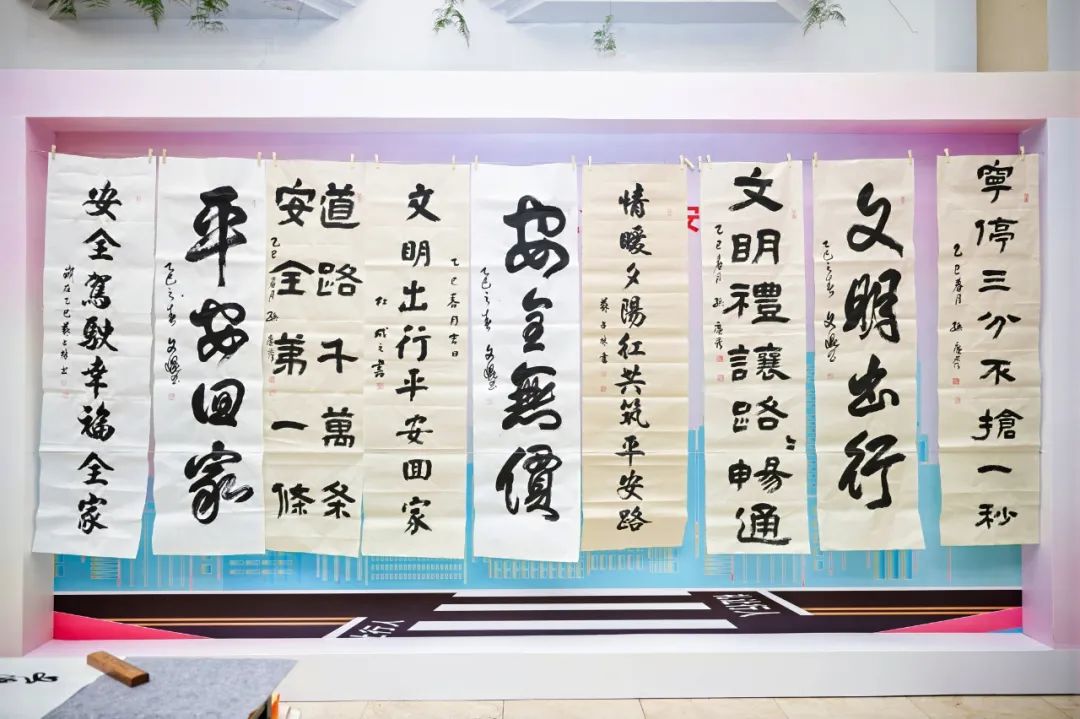 安全駕駛幸福全家
平安回家
乙巳之春
道路千萬条
安全第一條
乙巳春月
乙巳春月吉日
文明出行平安回家
杜成之書
安全無價
乙巳之春
情暖夕陽红共筑平安路
安
文明禮讓路々暢通
乙巳春月
文明出行
乙巳之春
寧停三分不搶一秒
乙巳春月
礼让行人